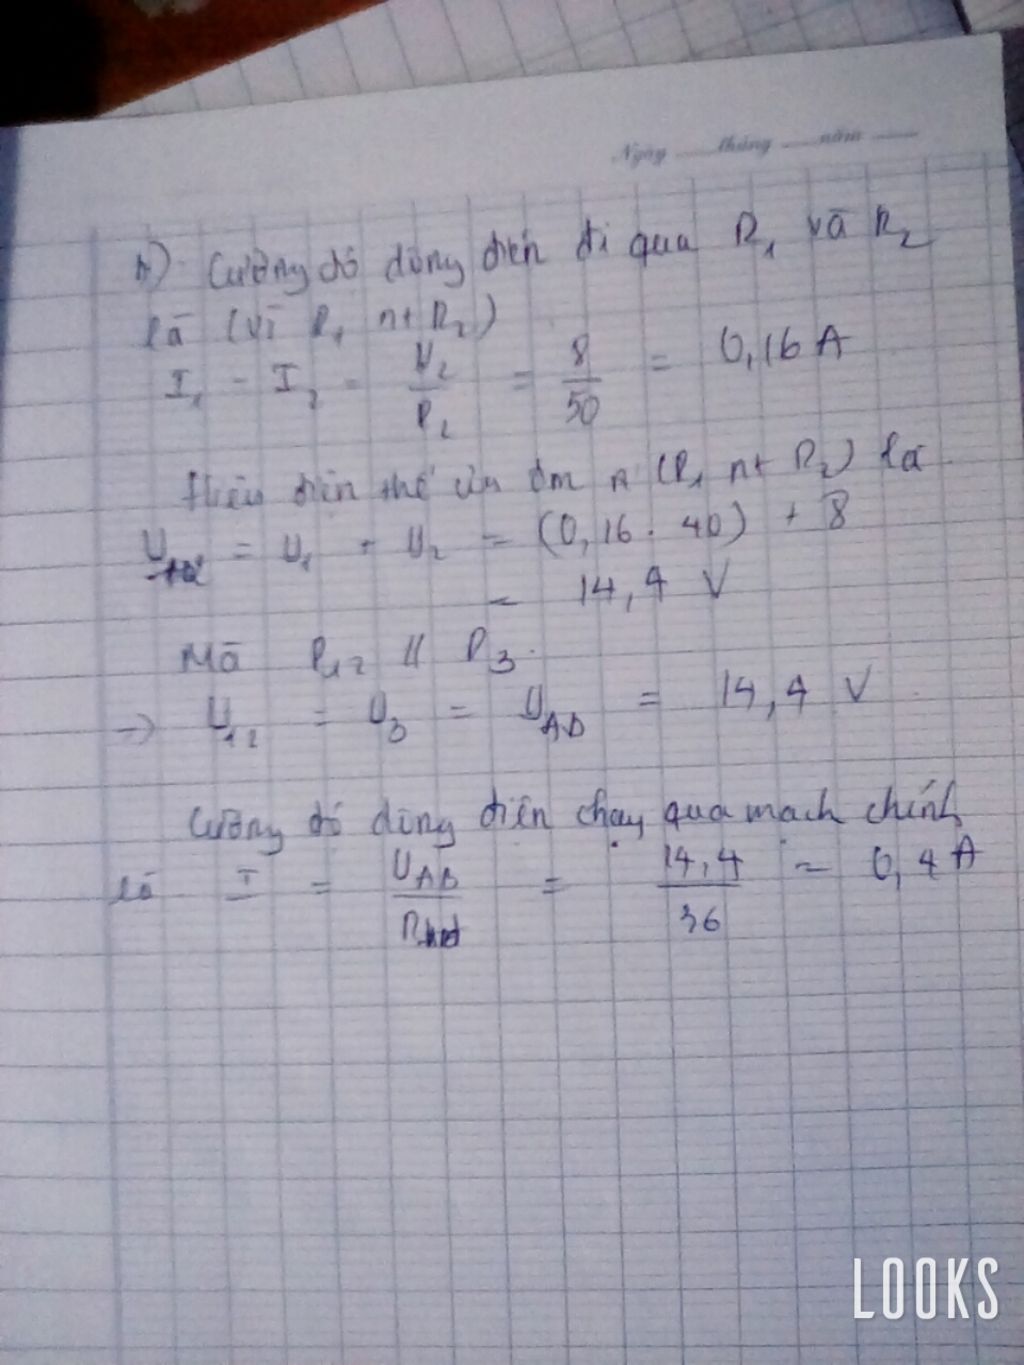 Ngày ...... tháng ...... năm ......
b) Cường độ dòng điện đi qua R1 và R2
là (vì R1 nt R2)
I1 = I2 = U2/R2 = 8/50 = 0,16 A
Hiệu điện thế của (R1 nt R2) là
U12 = U1 + U2 = (0,16 . 40) + 8
= 14,4 V
Mà R12 // R3
→ U12 = U3 = UAB = 14,4 V
Cường độ dòng điện chạy qua mạch chính
là I = UAB/R = 14,4/36 = 0,4 A
LOOKS